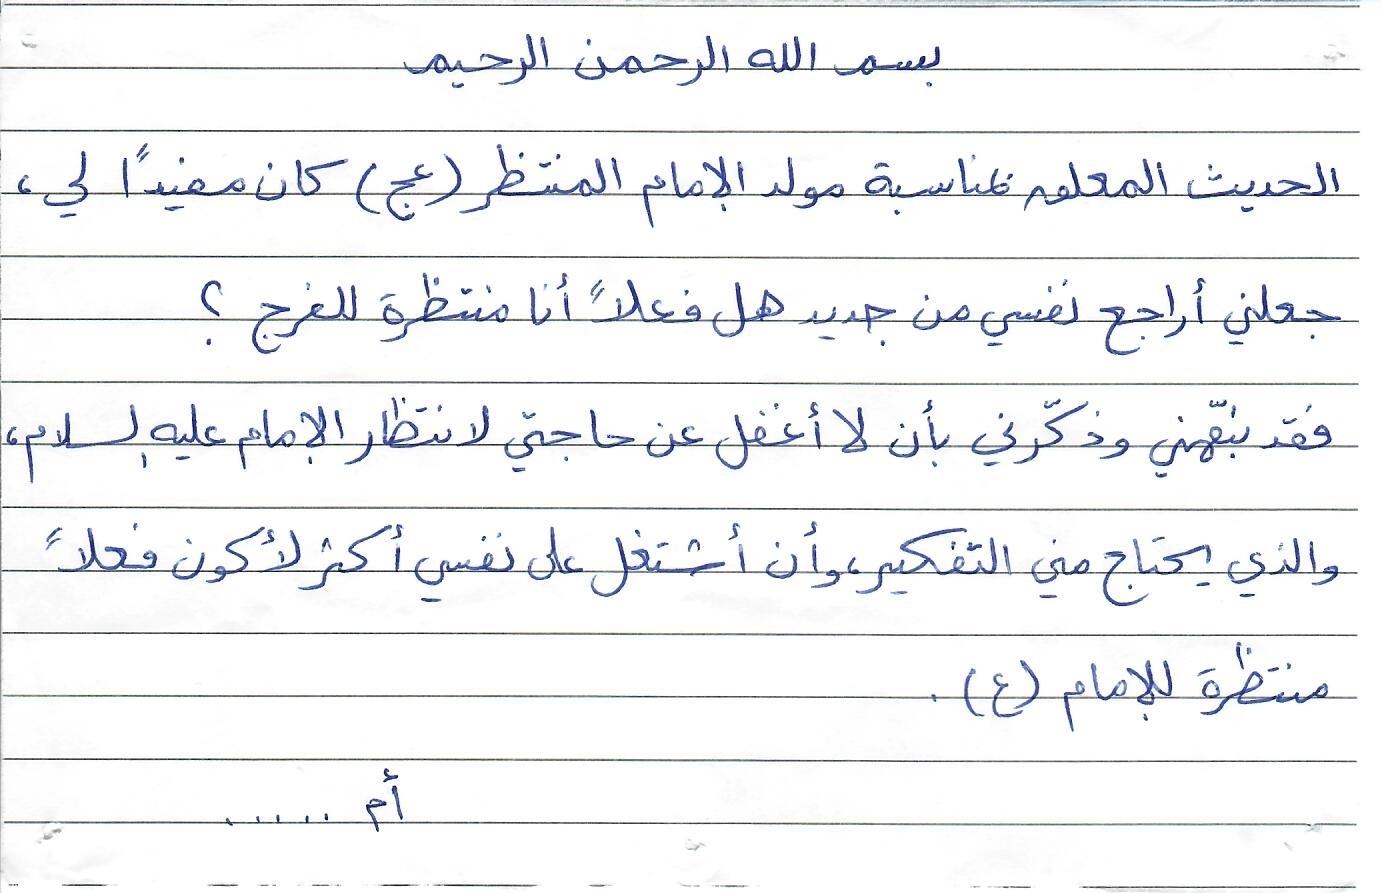 بسم الله الرحمن الرحيم
الحديث المعلق بمناسبة مولد الإمام المنتظر (عج) كان مفيدًا لي،
جعلني أراجع نفسي من جديد هل فعلاً أنا منتظرة للفرج ؟
فقد نبّهني وذكّرني بأن لا أغفل عن حاجتي لانتظار الإمام عليه السلام،
والذي يحتاج مني التفكير، وأن أشتغل على نفسي أكثر لأكون فعلاً
منتظرة للإمام (ع) .
أم .....